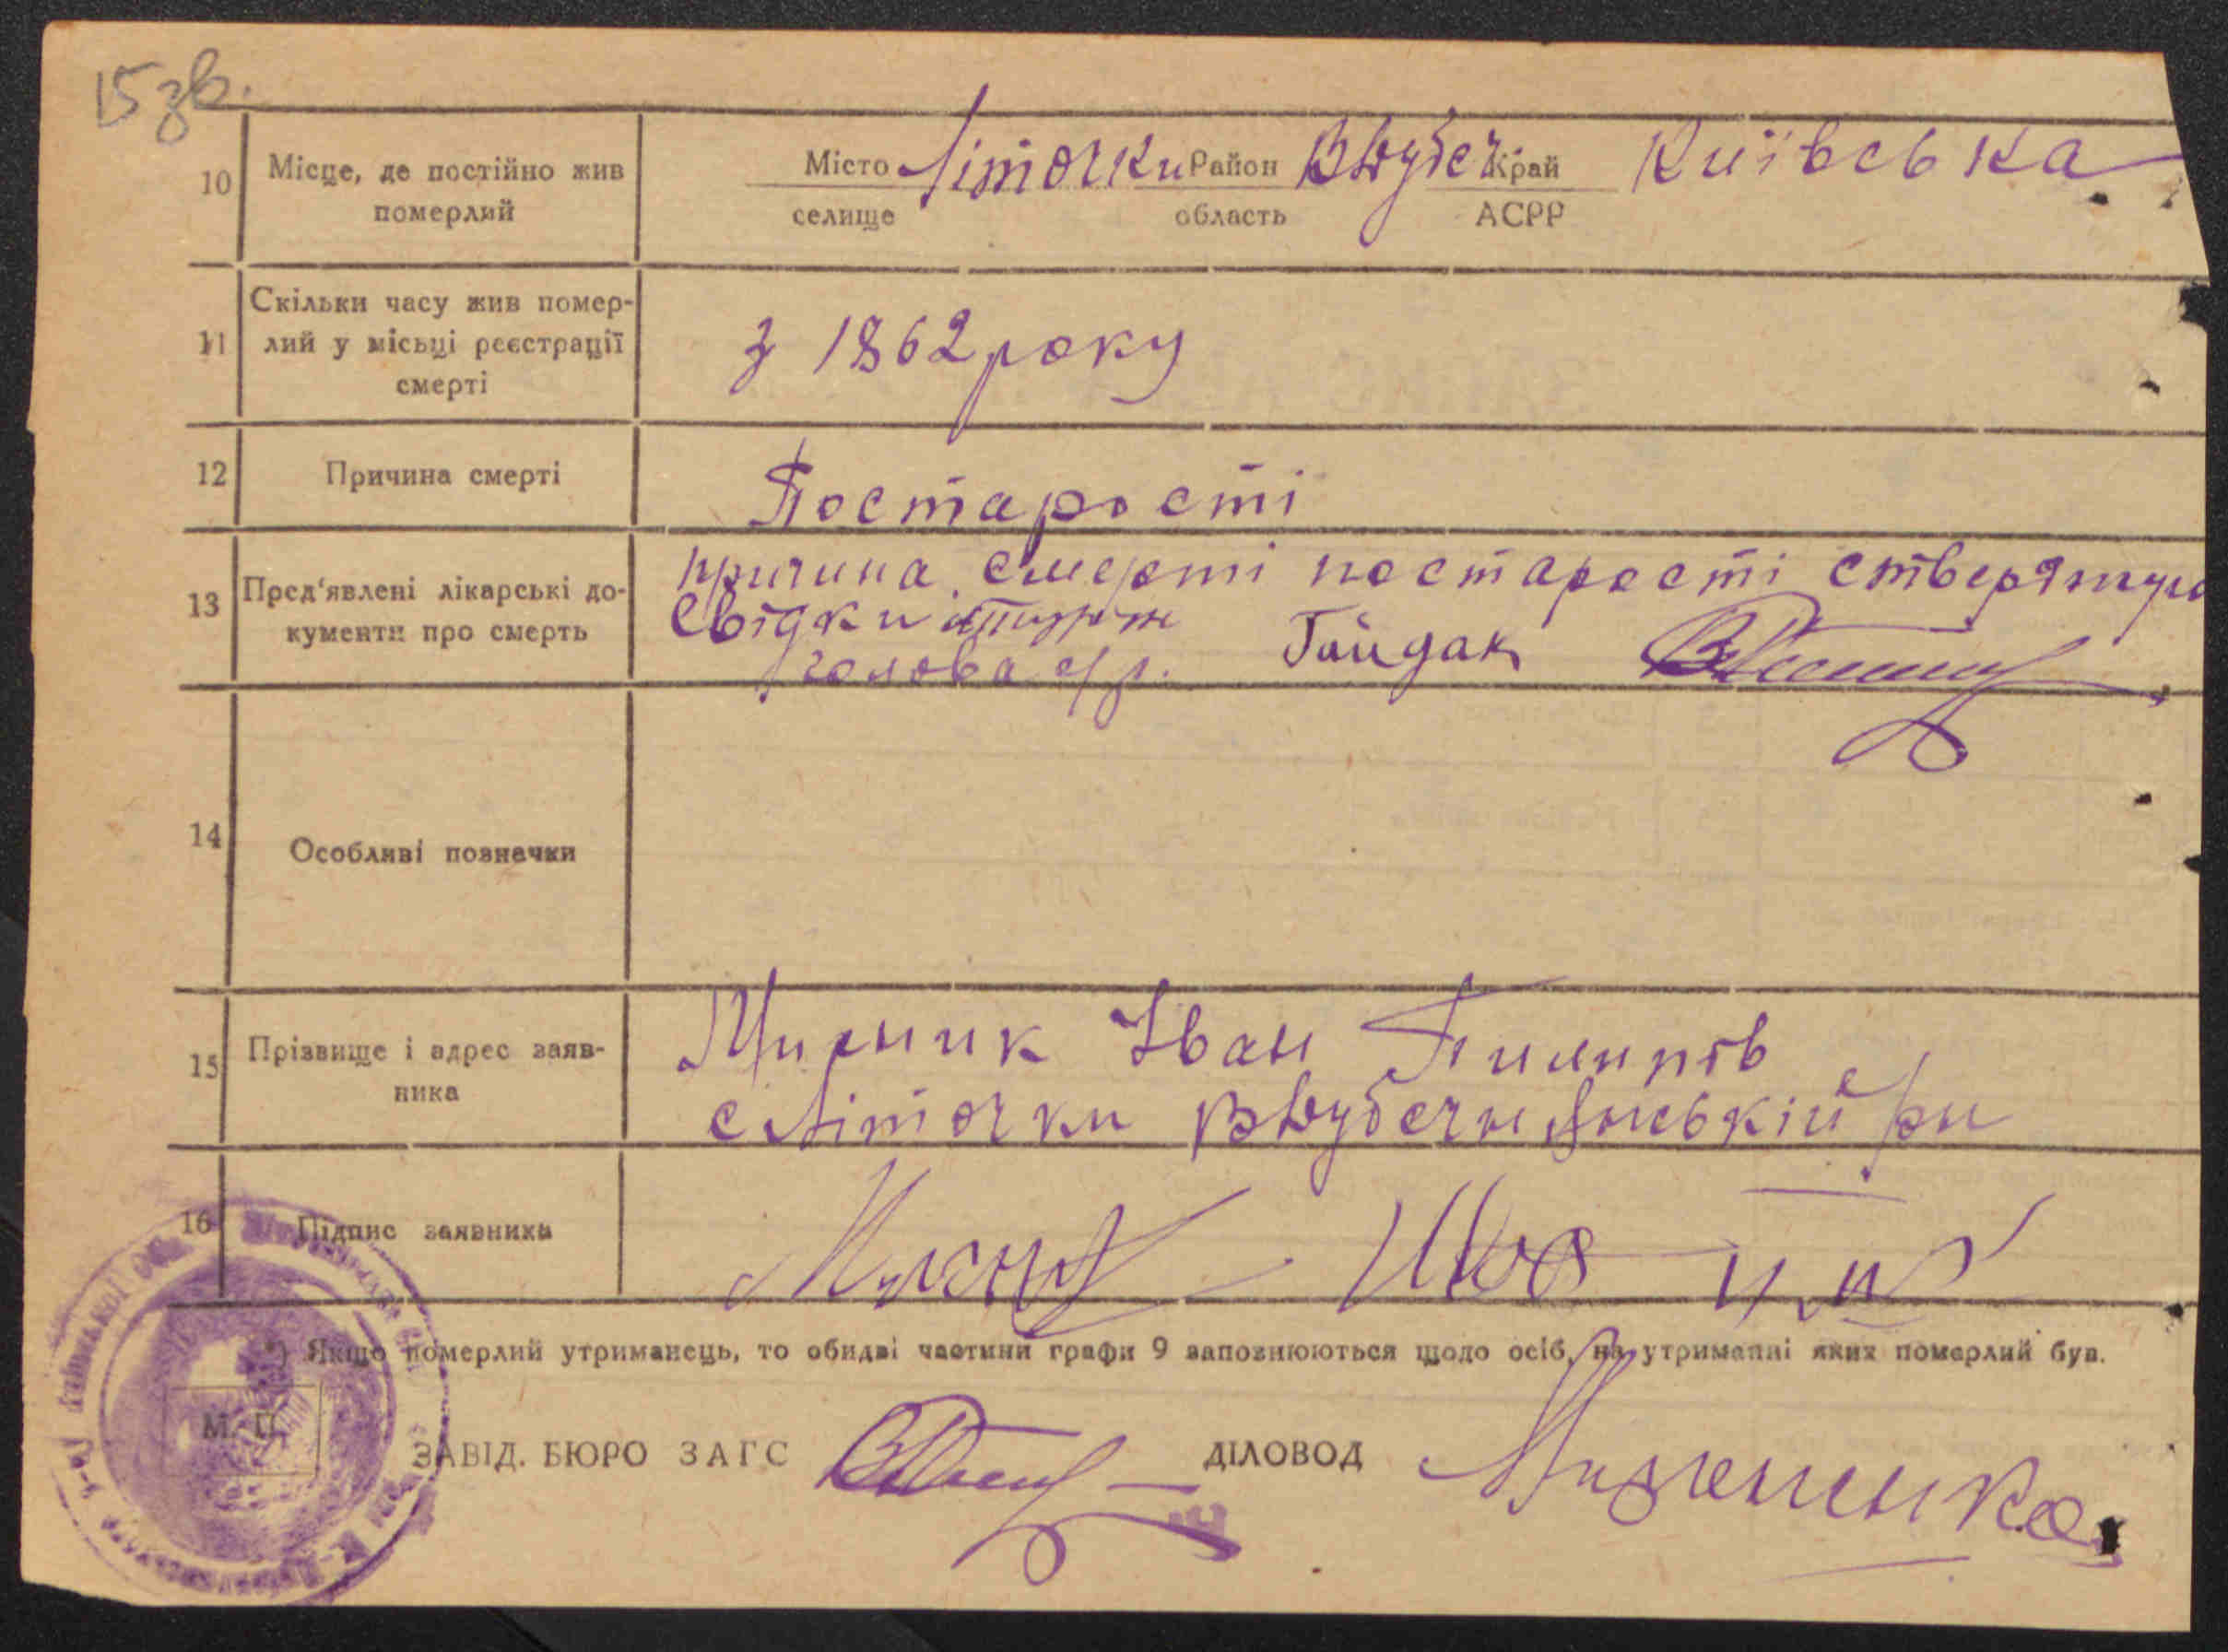 15 зв.
10 Місце, де постійно жив померлий
Місто Літочки Район Край Київська
селище область АСРР
11 Скільки часу жив помер-
лий у місьці реєстрації
смерті
з 1862 року
12 Причина смерті
Постарості
13 Пред'явлені лікарські до-
кументи про смерть
причина смерті постарості
свідки Гайдак
голова с/р.
14 Особливі позначки
15 Прізвище і адрес заяв-
ника
Іван Пилипів
с Літочки
16 Підпис заявника
*) Якщо померлий утриманець, то обидві частини графи 9 заповнюються щодо осіб, на утриманні яких померлий був.
М. П.
ЗАВІД. БЮРО ЗАГС ДІЛОВОД